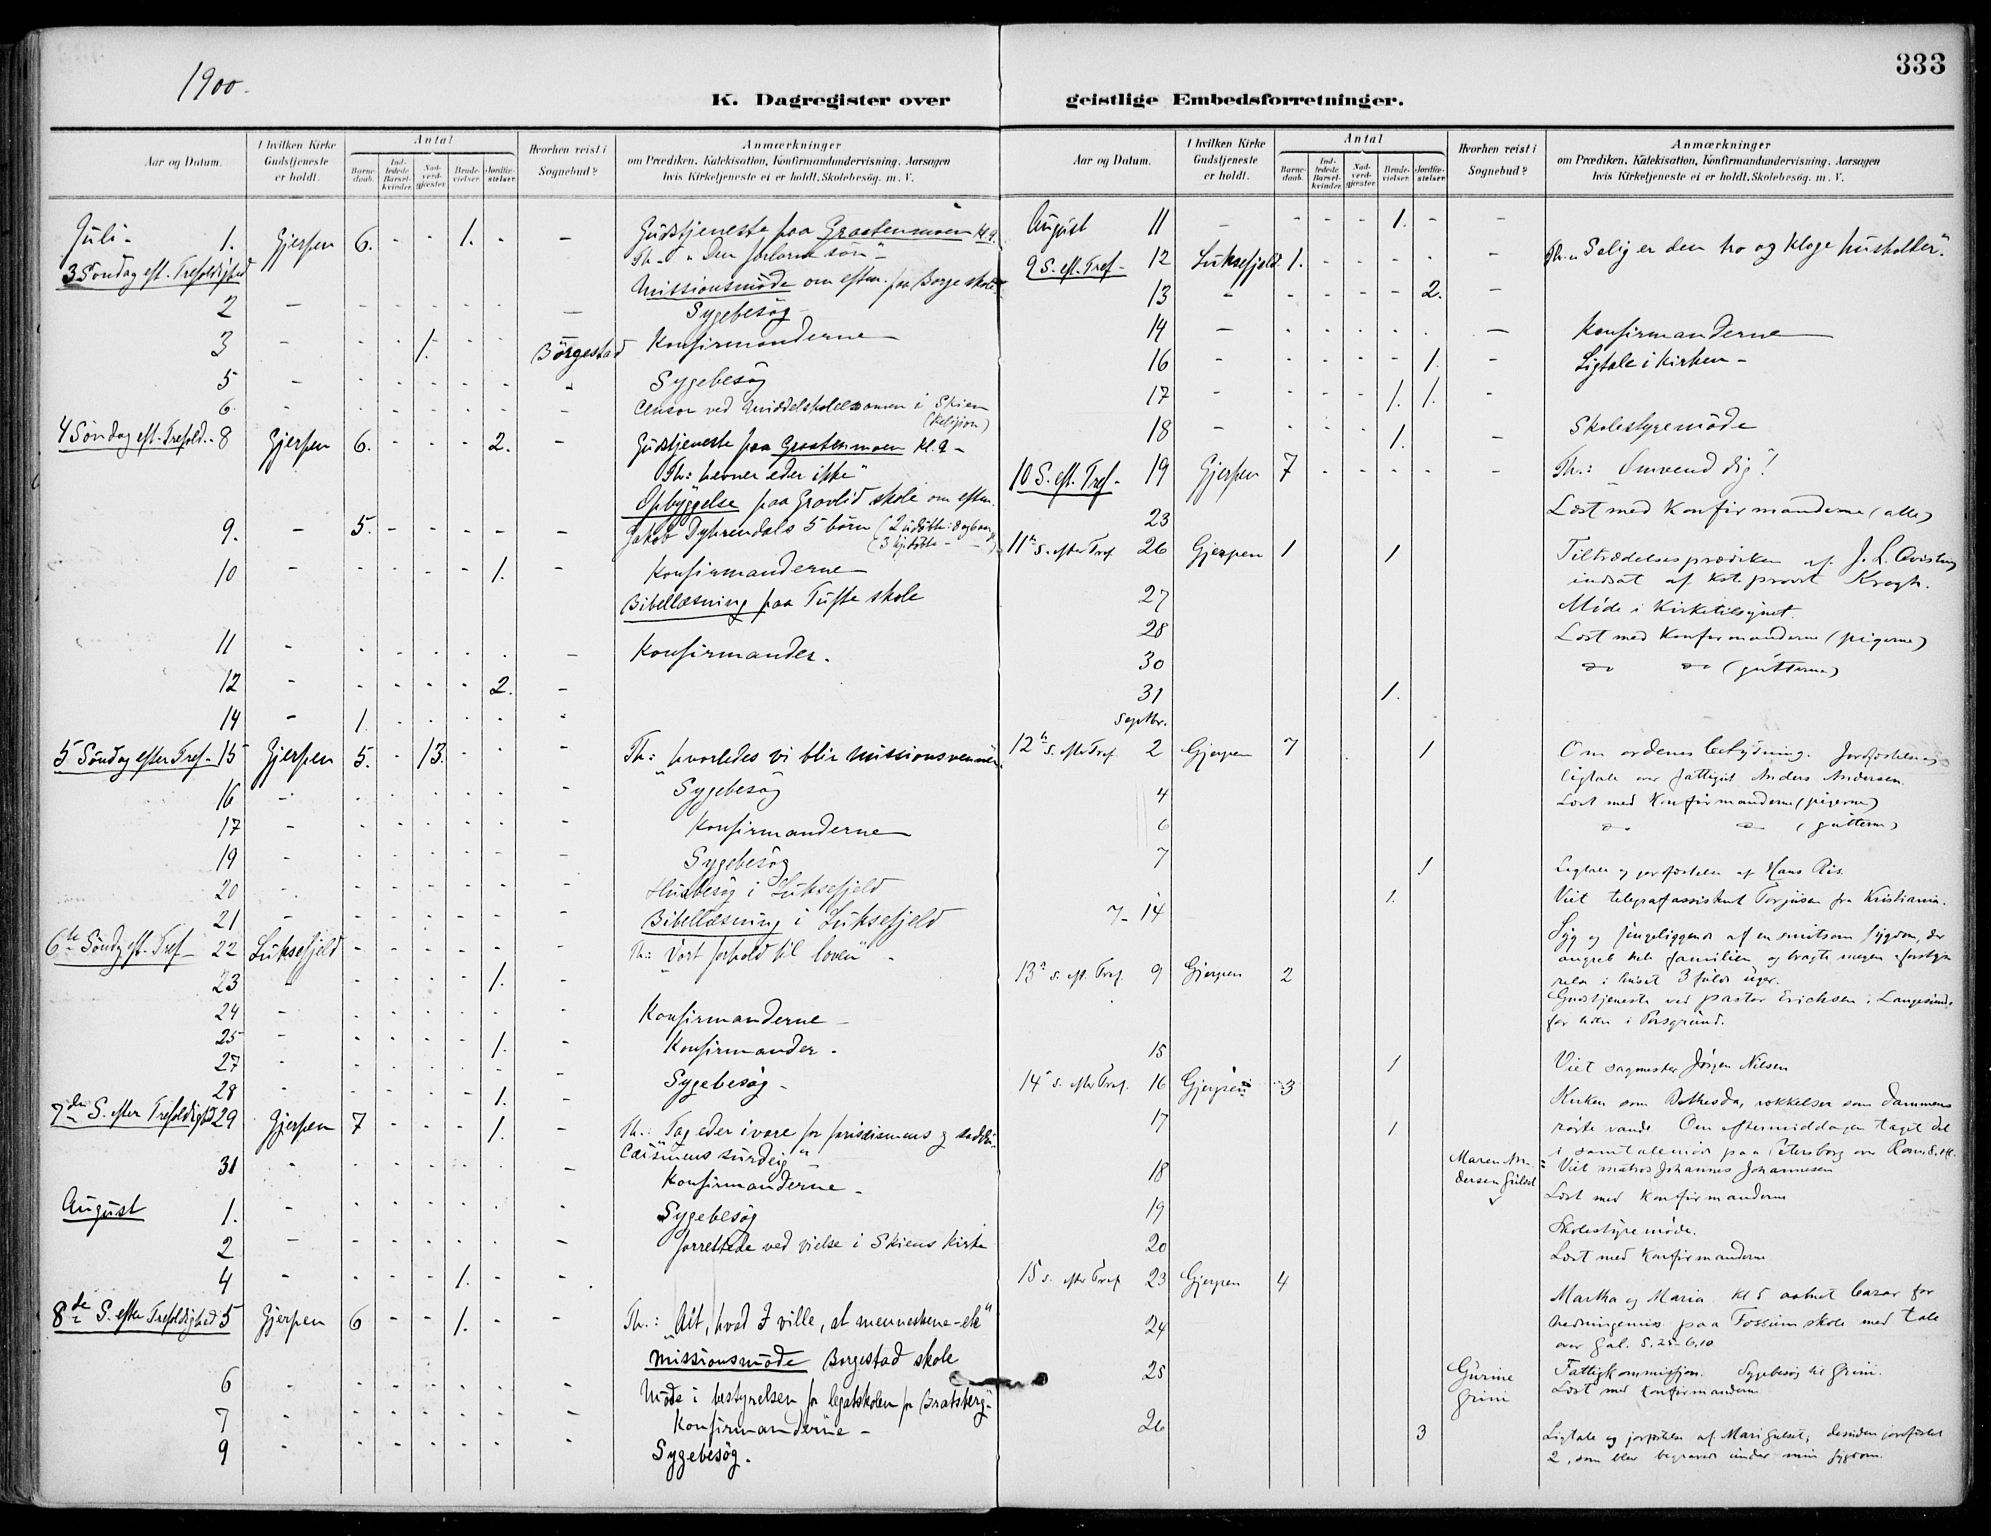 1900.
333
K. Dagregister over geistlige Embedsforretninger.
Aar og Datum.
I hvilken Kirke Gudstjeneste er holdt.
Antal
Barnedaab.
Indledede Barselkvinder.
Nadverdgjester.
Brudevielser.
Jordfæstelser.
Hvorhen reist i Sognebud?
Anmærkninger
om Prædiken, Katekisation, Konfirmandundervisning, Aarsagen
hvis Kirketjeneste ei er holdt, Skolebesøg, m. V.
Juli - 1. Gjerpen 6. - - 1. - - Gudstjeneste paa Graatenmoen kl. 9.
3 Söndag eft. Trefoldighed Th - "Den forlorne sön"
Missionsmöde om eftm. paa Borge skole
2 - - - - - - - Sygebesög
3 - - - 1. - - Börgestad Konfirmanderne
5 - - - - - - - Sygebesög
6. - - - - - - - Censor ved middelskoleexamen i Skien
(Religion)
4 Söndag eft. Trefold. - 8 Gjerpen 6. - - - 2. - Gudstjeneste paa Graatenmoen kl. 9 -
Th: hevner eder ikke"
Opbyggelse paa Gravlid skole om eftm.
9. - 5. - - - - - Jakob Dyhrendals 5 börn
10 - - - - - 1. - Konfirmanderne
Bibellæsning paa Tufte skole
11 - - - - - - - Konfirmander.
12 - - - - - 2. -
14 - 1. - - - - -
5 Söndag efter Tref - 15 Gjerpen 5. - 13. - - - Th: "hvorledes vi blir missionsvenner"
16 - - - - - - - Sygebesög
17 - - - - - - - Konfirmanderne
19 - - - - - - - Sygebesög
20 - - - - - - - Husbesög i Luksefjeld
21 - - - - - - - Bibellæsning i Luksefjeld
6te Söndg eft. Tref - 22 Luksefjeld - - - - - - Th: "Vort forhold til loven"
23 - - - - - 1. -
24 - - - - - - - Konfirmanderne -
25 - - - - - 1. - Konfirmander.
27 - - - - - - - Sygebesög -
28 - - - - - 1. -
7de S. efter Trefoldighed 29 Gjerpen 7 - - - 1. - Th.: "Tag eder ivare for farisæismens og saddu-
cæismens surdeig"
31 - - - - - - - Konfirmanderne -
August 1. - - - - - - - Sygebesög
2 - - - - - - - forrettede ved vielse i Skiens Kirke
4 - - - - 1. - -
8de S. efter Trefoldighed 5 Gjerpen 6 - - 1. - - Th.: "Alt, hvad I ville, at menneskene - etc"
Missionsmöde Borgestad skole
6 - - - - - - - Möde i bestyrelsen for legatskolen for Bratsberg
7 - - - - - - - Konfirmanderne -
9 - - - - - - - Sygebesög.
Aar og Datum.
I hvilken Kirke Gudstjeneste er holdt.
Antal
Barnedaab.
Indledede Barselkvinder.
Nadverdgjester.
Brudevielser.
Jordfæstelser.
Hvorhen reist i Sognebud?
Anmærkninger
om Prædiken, Katekisation, Konfirmandundervisning, Aarsagen
hvis Kirketjeneste ei er holdt, Skolebesøg, m. V.
August 11 - - - - 1. - -
9 S. eft. Tref - 12 Luksefjeld 1. - - - - - Th. "Salig er den tro og kloge husholder."
13 - - - - - 2. -
14 - - - - - - - Konfirmanderne
16 - - - - - 1. - Ligtale i kirken -
17 - - - - 1. 1. -
18 - - - - 1. - - Skolestyremöde
10 S. eft. Tref - 19 Gjerpen 7 - - - - - Th.: "Omvend dig"!
23 Læst med Konfirmanderne (alle)
11te S. efter Tref 26 Gjerpen 1 1 Tiltrædelsesprædiken af J. L. Qvisling
indsat af kst. provst Krogh.
27 Möde i Kirketilsynet.
28 Læst med Konfirmanderne (pigerne)
30 do do (gutterne)
31 1.
Septbr.
12te S. efter Tref 2 Gjerpen 7 1 Om ordenes betydning. Jordfæstelse og
ligtale over fattiggut Anders Andersen
4 Læst med Konfirmanderne (pigerne)
6 do do (gutterne)
7 1 Ligtale og jordfæstelse af Hans Ris.
1. Viet telegrafassistent Torjusen fra Kristiania.
7 - 14 Syg og sengeliggende af en smitsom sygdom, der
angreb hele familien og bragte megen forstyr-
relse i huset 3 fulde uger.
13de S. eft. Tref. 9 Gjerpen 2 Gudstjeneste ved pastor Erichsen i Langesund,
for tiden i Porsgrund.
15 1 Viet sagmester Jörgen Nilsen
14de S. efter Tref. 16 Gjerpen 3 Kirken som Bethesda, vækkelser som dammens
rörte vande. Om eftermiddagen taget del
i samtalemöde paa Petersborg over Rom.
17 1 Viet matros Johannes Johannesen
18 Maren An-
dersen Gulset Læst med Konfirmanderne
19 Skolestyremöde.
20 Læst med Konfirmanderne
15 S. efter Tref 23 Gjerpen 4 Martha og Maria. Kl 5 aabnet bazar for
hedningemis. paa Fossum skole med tale
over Gal. 5.25-6.10
24
25 Gurine
Grini Fattigkommission. Sygebesög til Grini.
Læst med Konfirmanderne
26 3 Ligtale og jordfæstelse af Mari Gulset; desuden jordfæstet
2, som blev begravede under min sygdom.